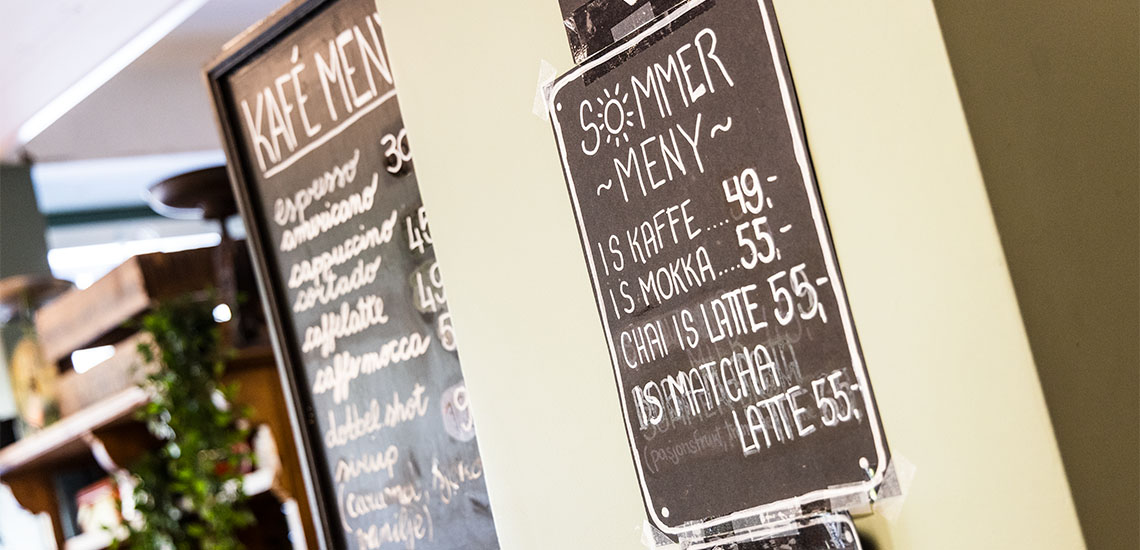 KAFÉ MENY
espresso 30
americano
cappuccino 45
cortado
caffelatte 49
caffe mocca 5
dobbel shot 9
sirup
(caramel,
vanilje)
SOMMER
~MENY~
IS KAFFE....49,-
IS MOKKA....55,-
CHAI IS LATTE 55,-
IS MATCHA
LATTE 55,-
(pasjonsfrukt,